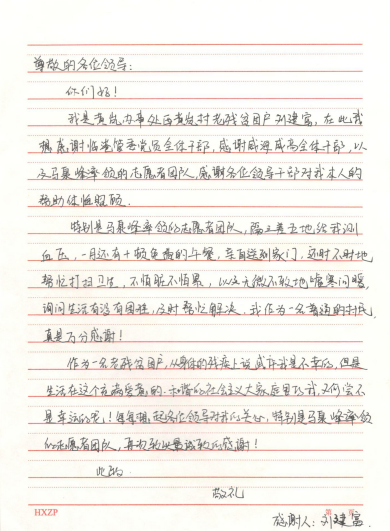 尊敬的各位领导:
你们好!
我是黄岚办事处西黄岚村老残贫困户刘建富,在此我
想感谢临港管委党员全体干部,感谢威海威高全体干部,以
及马聚峰率领的志愿者团队,感谢各位领导干部对我本人的
帮助体恤照顾。
特别是马聚峰率领的志愿者团队,隔三差五地给我测
血压,一月还有十顿免费的午餐,亲自送到家门,还时不时地
帮忙打扫卫生,不怕脏不怕累,以及无微不致地嘘寒问暖,
询问生活有没有困难,及时帮忙解决,我作为一名普通的村民,
真是万分感谢!
作为一名老残贫困户,从身体的残疾上说或许我是不幸的,但是
生活在这个充满爱意的、和谐的社会主义大家庭里的我,又何尝不
是幸运的呢!每每想起各位领导对我的关心,特别是马聚峰率领
的志愿者团队,再次致以最诚挚的感谢!
此致
敬礼
HXZP
感谢人:刘建富